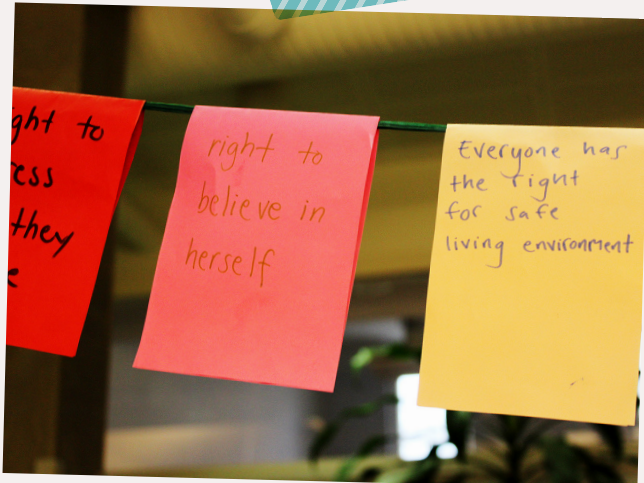 to
they
right to
believe in
herself
Everyone has
the right
for safe
living environment